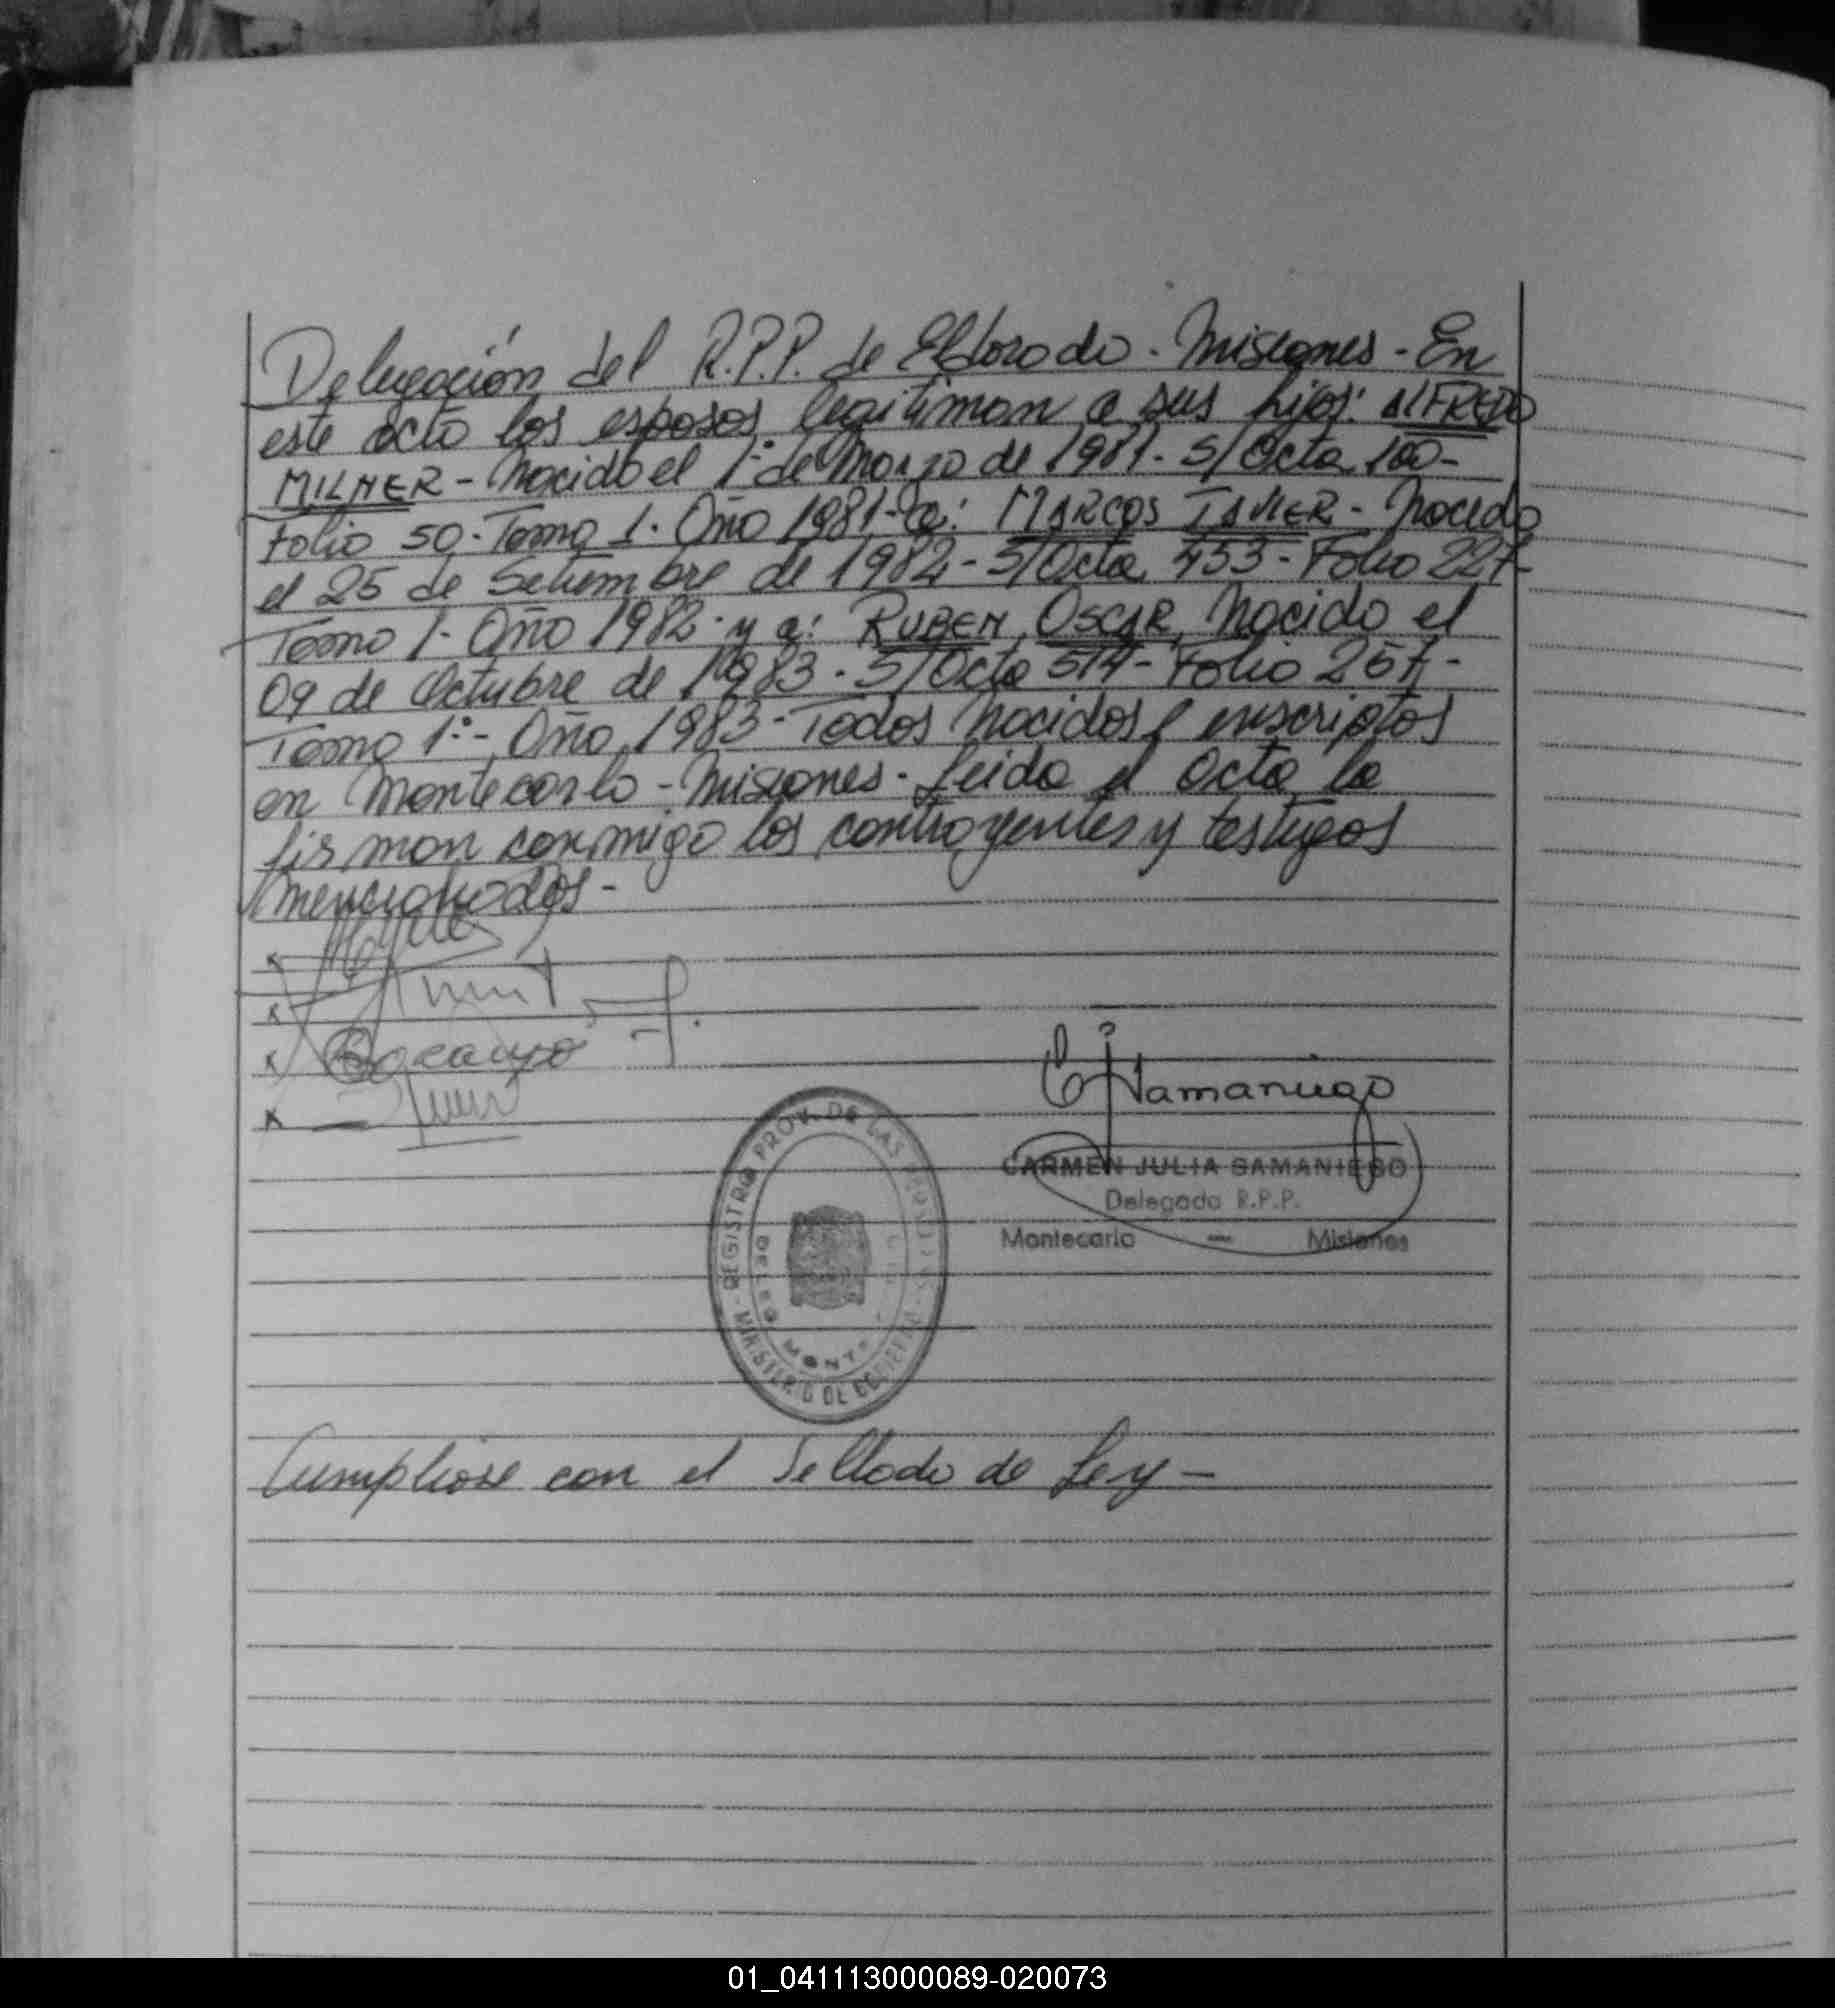 Delegación del R.P.P. de Eldorado - Misiones - En
este acto los esposos legitiman a sus hijos: ALFREDO
MILNER - Nacido el 1° de Marzo de 1981 - S/Acta 100 -
Folio 50 - Tomo 1 - Año 1981 - a: MARCOS JAVIER - Nacido
el 25 de Setiembre de 1982 - S/Acta 453 - Folio 227 -
Tomo 1 - Año 1982 - y a: RUBEN OSCAR Nacido el
09 de Octubre de 1983 - S/Acta 514 - Folio 257 -
Tomo 1° - Año 1983 - Todos Nacidos e inscriptos
en Montecarlo - Misiones - Leida el Acta la
firman conmigo los contrayentes y testigos
mencionados -
CJSamaniego
CARMEN JULIA SAMANIEGO
Delegada R.P.P.
Montecarlo — Misiones
REGISTRO PROV. DE LAS
MINISTERIO DE GOBIERNO
Cumpliose con el Sellado de Ley -
01_041113000089-020073